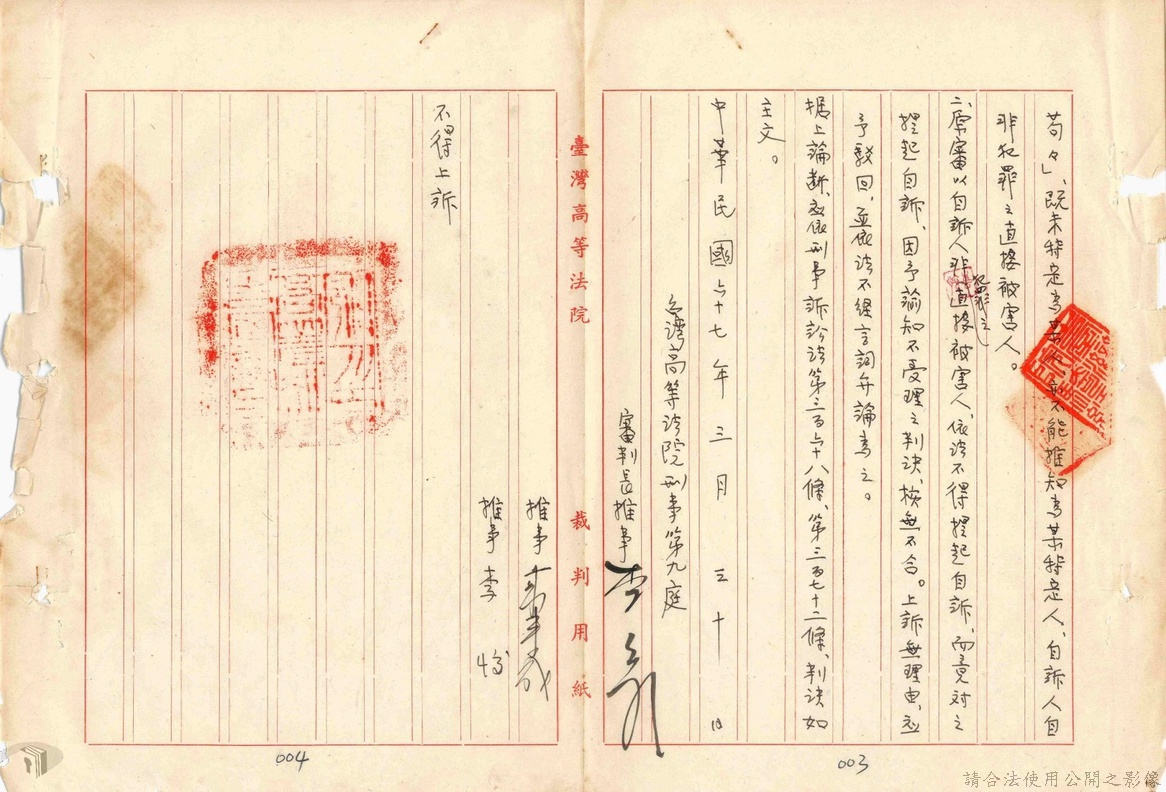 苟々」、既未特定為某人,亦不能推知為某特定人、自訴人自
非犯罪之直接被害人。
二、原審以自訴人非犯罪之直接被害人、依法不得提起自訴、而竟對之
提起自訴、因予諭知不受理之判決、核無不合。上訴無理由、應
予駁回、並依法不經言詞弁論為之。
據上論斷、應依刑事訴訟法第三百六十八條、第三百七十二條、判決如
主文。
中華民國六十七年三月三十日
台灣高等法院刑事第九庭
審判長推事
臺灣高等法院 裁判用紙
推事
推事 李
不得上訴
003
004
請合法使用公開之影像